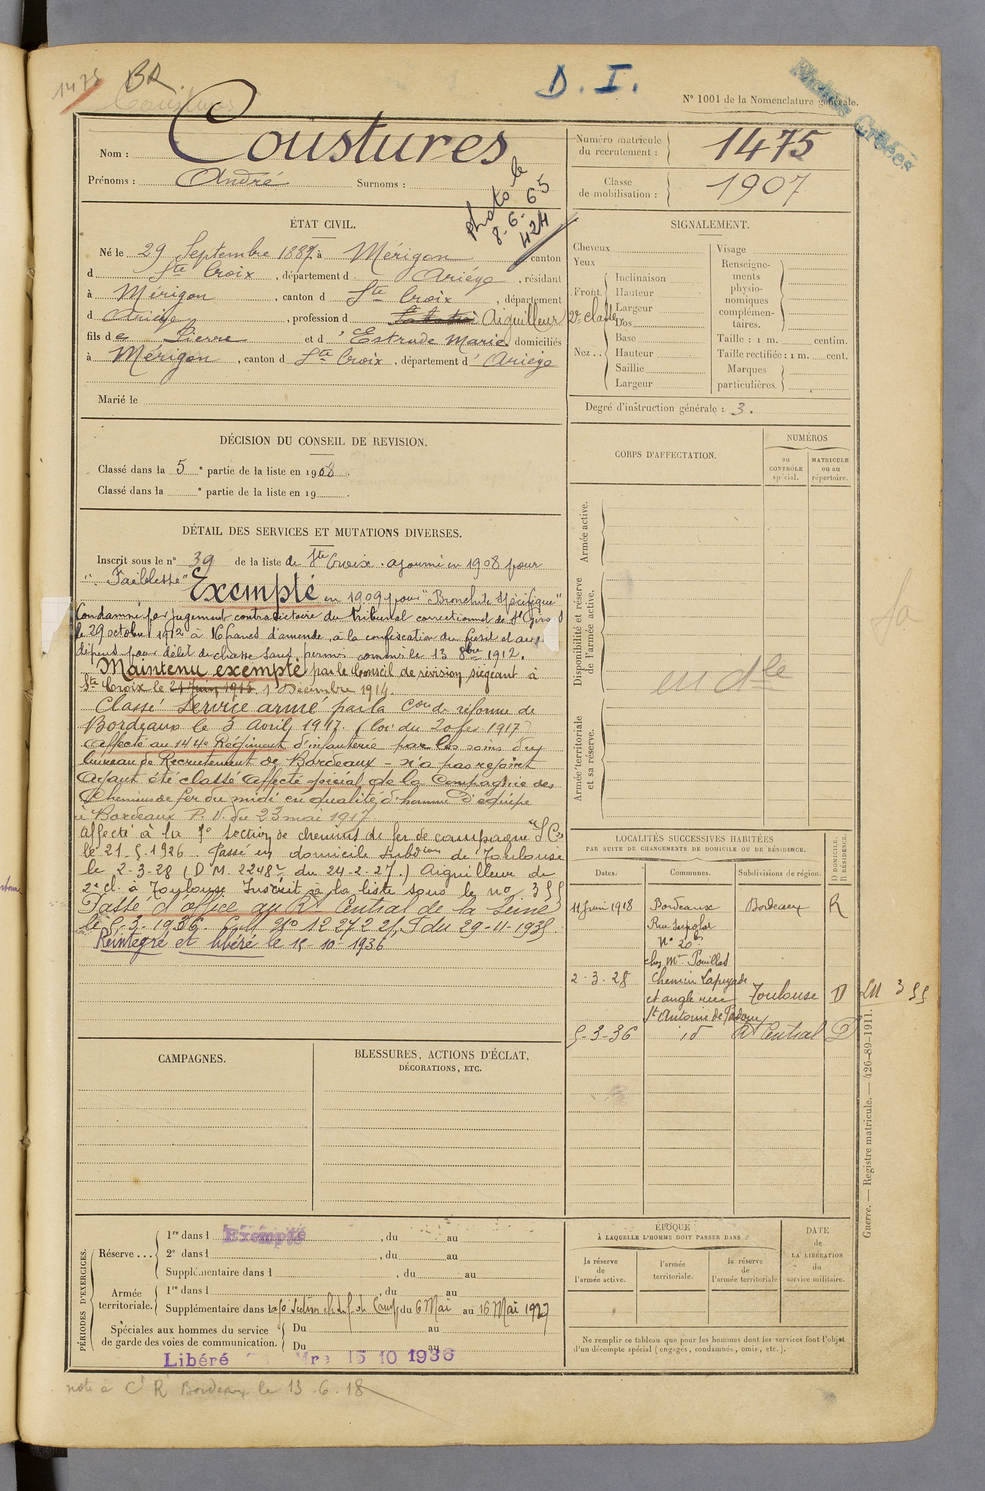 1475 BR
D. I.
Nº 1001 de la Nomenclature générale.
Nom : Coustures
Prénoms : André Surnoms :
photo le
8-6-65
424
Numéro matricule du recrutement : 1475
Classe de mobilisation : 1907
ÉTAT CIVIL.
Né le 29 Septembre 1887, à Mérigon canton
d Ste Croix, département d Ariège, résidant
à Mérigon, canton d Ste Croix, département
d Ariège, profession d Aiguilleur 2e classe
fils de Pierre et d' Estrade Marie domiciliés
à Mérigon, canton d Ste Croix, département d' Ariège
Marié le
SIGNALEMENT.
Cheveux
Yeux
Front
Inclinaison
Hauteur
Largeur
Nez..
Dos
Base
Hauteur
Saillie
Largeur
Visage
Renseignements physionomiques complémentaires.
Taille : 1 m. centim.
Taille rectifiée : 1 m. cent.
Marques particulières.
Degré d'instruction générale : 3.
DÉCISION DU CONSEIL DE REVISION.
Classé dans la 5e partie de la liste en 1908.
Classé dans la e partie de la liste en 19
DÉTAIL DES SERVICES ET MUTATIONS DIVERSES.
Inscrit sous le nº 39 de la liste de Ste Croix. ajourné en 1908 pour
"Faiblesse" Exempté en 1909 pour "Bronchite Spécifique"
Condamné par jugement contradictoire du tribunal correctionnel de St Girons
le 29 octobre 1912 à 16 francs d'amende, à la confiscation du fusil et aux
dépens pour délit de chasse sans permis commis le 13 8bre 1912.
Maintenu exempté par le Conseil de révision siégeant à
Ste Croix le 21 Juin 1915 1 Décembre 1914.
Classé Service armé par la Con de réforme de
Bordeaux le 3 avril 1917. (loi du 20 fev 1917)
affecté au 144e Régiment d'infanterie par les soins du
bureau de Recrutement de Bordeaux - n'a pas rejoint
ayant été classé affecté spécial de la Compagnie des
Chemins de fer du midi en qualité d'homme d'équipe
à Bordeaux P. V. du 23 mai 1917.
Affecté à la 7e section de chemins de fer de campagne
le 21-5-1926 Passé en domicile Subdion de Toulouse
le 2-3-28 (D.M. 2248 du 24-2-27.) Aiguilleur de
2e cl. à Toulouse Inscrit à la liste sous le no 355
Passé d'office au Rt Central de la Seine
le 5-3-1936. du 29-11-1935
Réintégré et libéré le 15-10-1936
CORPS D'AFFECTATION.
NUMÉROS
au CONTRÔLE spécial.
MATRICULE ou au répertoire.
Armée active.
Disponibilité et réserve de l'armée active.
Armée territoriale et sa réserve.
en dle
LOCALITÉS SUCCESSIVES HABITÉES
PAR SUITE DE CHANGEMENTS DE DOMICILE OU DE RÉSIDENCE.
Dates. Communes. Subdivisions de région. D DOMICILE. R RÉSIDENCE.
11 Juin 1918 Bordeaux Bordeaux R
Nº 20 bis
2-3-28 Chemin Lapujade
et angle rue Toulouse D LM 355
St Antoine de Padoue
5-3-36 id Rt Central D
CAMPAGNES.
BLESSURES, ACTIONS D'ÉCLAT,
DÉCORATIONS, ETC.
PÉRIODES D'EXERCICES.
Réserve...
1re dans l Exempté, du au
2e dans l , du au
Supplémentaire dans l , du au
Armée territoriale.
1re dans l , du au
Supplémentaire dans la 7e Section ch de f de Camp du 6 Mai au 16 Mai 1927
Spéciales aux hommes du service de garde des voies de communication.
Du au
Du au
Libéré 15 10 1936
ÉPOQUE
À LAQUELLE L'HOMME DOIT PASSER DANS
la réserve de l'armée active.
l'armée territoriale.
la réserve de l'armée territoriale
DATE de LA LIBÉRATION du service militaire.
Ne remplir ce tableau que pour les hommes dont les services font l'objet
d'un décompte spécial (engagés, condamnés, omis, etc.).
Guerre. — Registre matricule. — 426-89-1911.
note à C R Bordeaux le 13.6.18